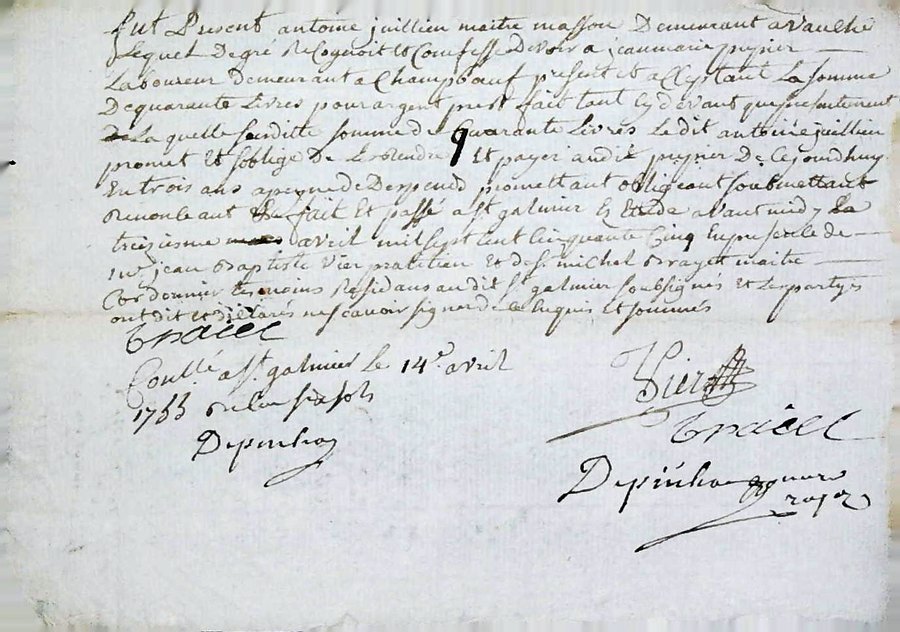 fut Present antoine juillien maitre masson Demeurant a vauche
Lequel De gré Recognoit et Confesse Devoir a jeanmarie
Laboureur demeurant a Champbœuf present et acceptant La somme
De quarante Livres pour argent prest fait tant cy devant que presentement
De La quelle susditte somme de quarante Livres Le dit antoine juillien
promet Et soblige De Les Rendre Et payer audit De Ce jourdhuy
En trois ans a peyne de Despend promettant obligeant soubmettant
Renonceant fait Et passé a st galmier Es Etude avant midy La
treziesme avril mil sept cent Cinquante Cinq En presence de
sr jean Baptiste Vier pratitien Et de sr michel maitre
Cordonnier temoins Residans audit st galmier soubsignés Et Les partyes
ont dit et declarés ne scavoir signer de ce Enquis Et sommés
Conllé a st galmier Le 14e avril
1755
Vier